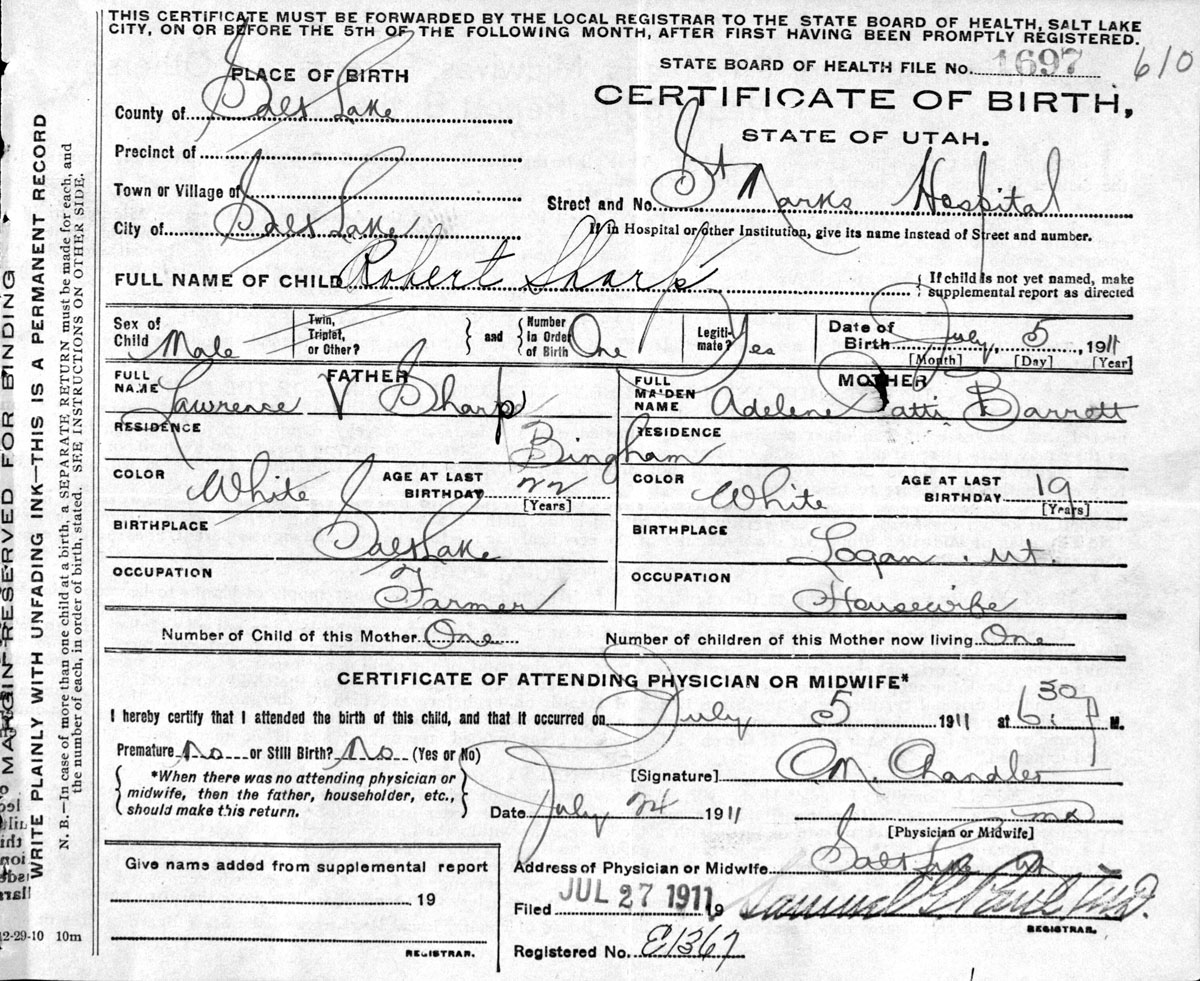 THIS CERTIFICATE MUST BE FORWARDED BY THE LOCAL REGISTRAR TO THE STATE BOARD OF HEALTH, SALT LAKE
CITY, ON OR BEFORE THE 5TH OF THE FOLLOWING MONTH, AFTER FIRST HAVING BEEN PROMPTLY REGISTERED.
STATE BOARD OF HEALTH FILE No. 1697 610
PLACE OF BIRTH
CERTIFICATE OF BIRTH,
STATE OF UTAH.
County of Salt Lake
Precinct of
Town or Village of
Street and No. St Marks Hospital
City of Salt Lake
If in Hospital or other Institution, give its name instead of Street and number.
FULL NAME OF CHILD Robert Sharp
{ If child is not yet named, make
supplemental report as directed
Sex of Child Male
Twin, Triplet, or Other? } and { Number in Order of Birth One
Legiti-mate? Yes
Date of Birth July, 5, 1911
[Month] [Day] [Year]
FATHER
FULL NAME Lawrence V Sharp
MOTHER
FULL MAIDEN NAME Adelene Patti Barrett
RESIDENCE Bingham
RESIDENCE
COLOR White AGE AT LAST BIRTHDAY 22 [Years]
COLOR White AGE AT LAST BIRTHDAY 19 [Years]
BIRTHPLACE Salt Lake
BIRTHPLACE Logan, Ut.
OCCUPATION Farmer
OCCUPATION Housewife
Number of Child of this Mother One
Number of children of this Mother now living One
CERTIFICATE OF ATTENDING PHYSICIAN OR MIDWIFE*
I hereby certify that I attended the birth of this child, and that it occurred on July 5 1911 at 6:30 P M.
Premature No or Still Birth? No (Yes or No)
{ *When there was no attending physician or
midwife, then the father, householder, etc.,
should make this return. }
[Signature] M. Chandler
Date July 24 1911 MD
[Physician or Midwife]
Give name added from supplemental report
19
REGISTRAR.
Address of Physician or Midwife Salt Lake
Filed JUL 27 1911 19 Samuel G. Paul, M.D.
REGISTRAR.
Registered No. E1367
12-29-10 10m
MARGIN RESERVED FOR BINDING
WRITE PLAINLY WITH UNFADING INK—THIS IS A PERMANENT RECORD
N. B.—In case of more than one child at a birth, a SEPARATE RETURN must be made for each, and
the number of each, in order of birth, stated. SEE INSTRUCTIONS ON OTHER SIDE.